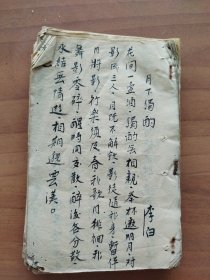 月下獨酌
李白
花间一壶酒,獨酌無相親,举杯邀明月,对
影成三人,月既不解飲,影徒随我身,暫伴
月將影,行樂須及春,我歌月徘徊,我
舞影零碎,醒時同交歡,醉後各分散,
永結無情遊,相期邈雲漢。